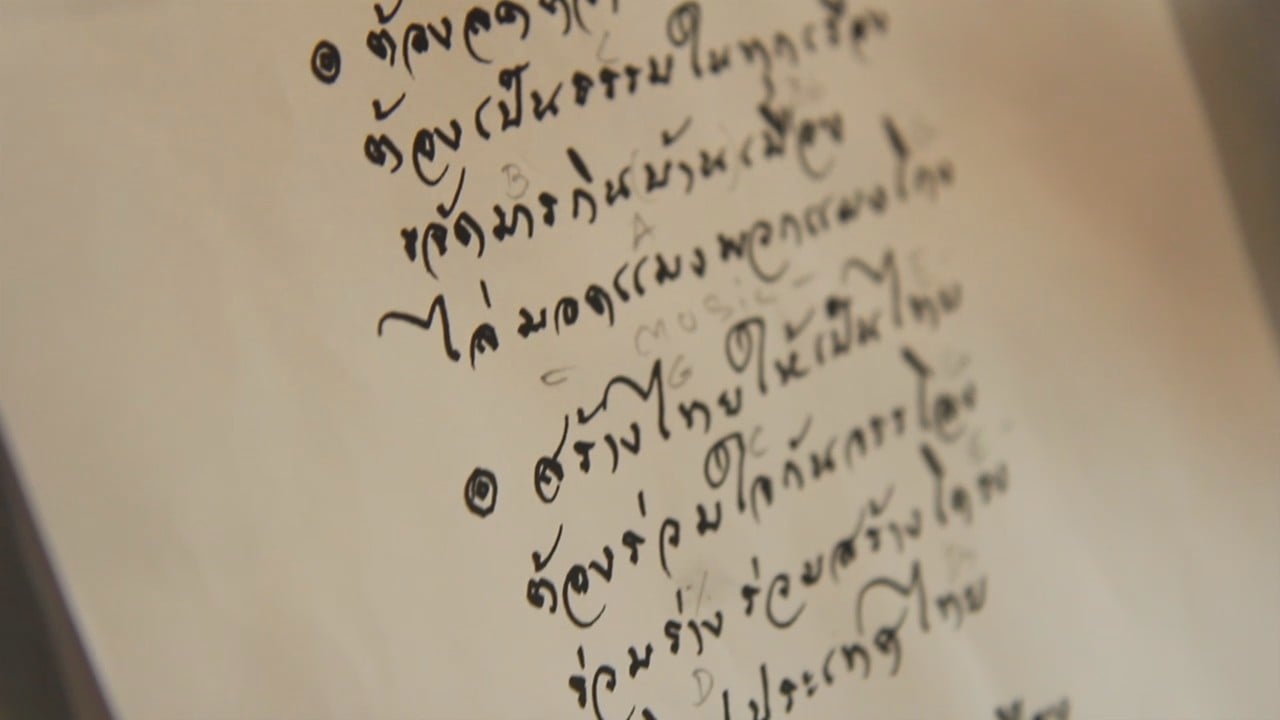 ต้อง
ต้องเป็นธรรมในทุกเรื่อง
B
ขจัดมารกินบ้านเมือง
A
ไล่มอดแมงพวกแมงโกง
C MUSIC
G
สร้างไทยให้เป็นไทย
C
ต้องร่วมใจกัน
ร่วมร่างร่วมสร้างโครง
D
ประเทศไทย